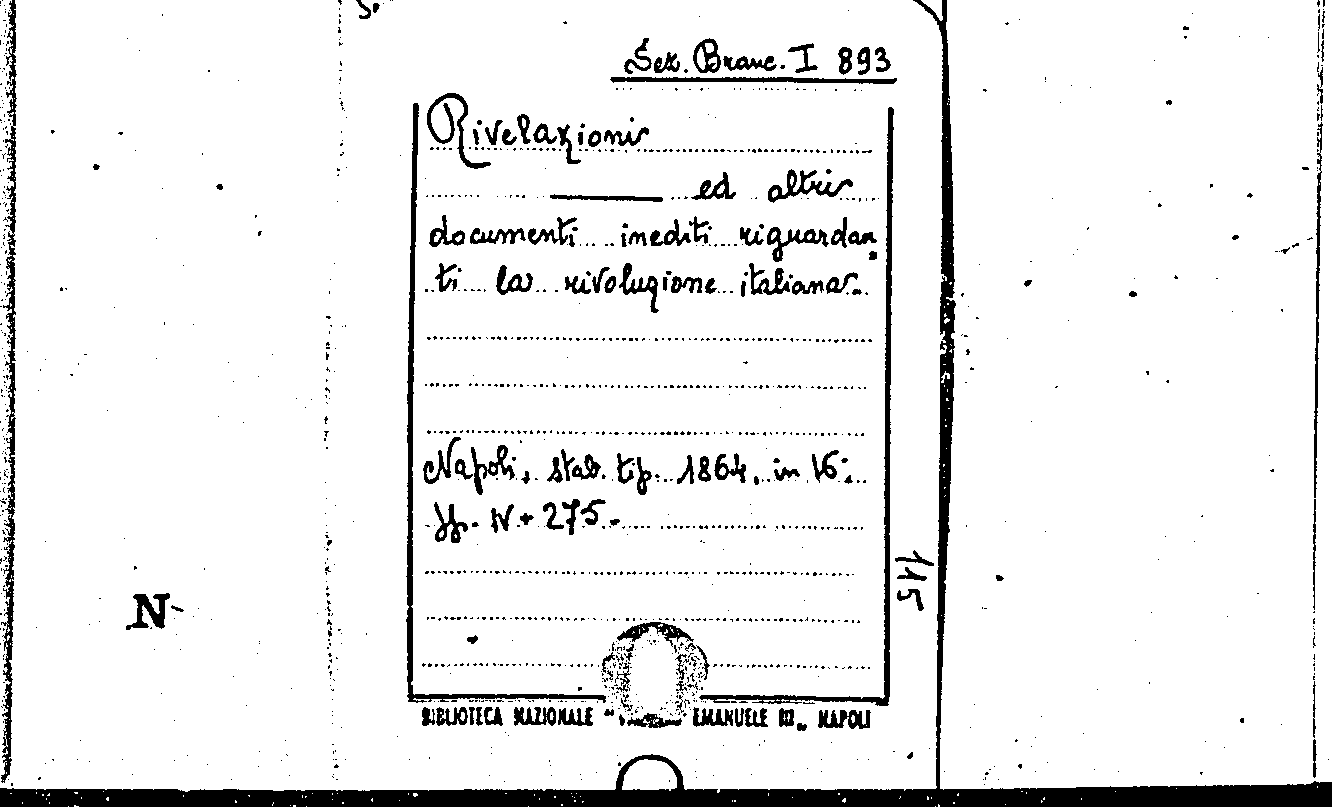 Sez. Branc. I 893
Rivelazioni
——— ed altri
documenti inediti riguardan
ti la rivoluzione italiana.
Napoli, stab. tip. 1864, in 16.
pp. IV + 275.
115
N
BIBLIOTECA NAZIONALE " EMANUELE III„ NAPOLI